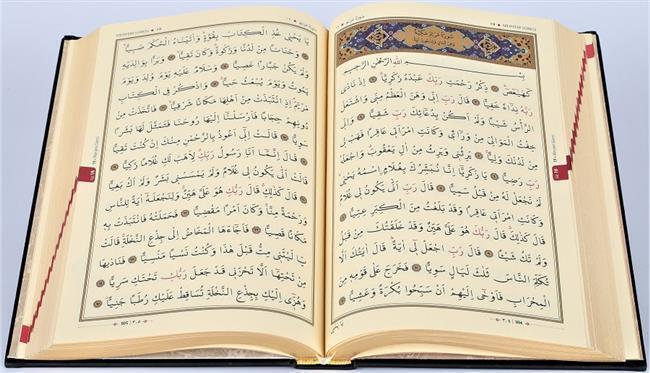 سورة مريم
كهيعص ذِكْرُ رَحْمَتِ رَبِّكَ عَبْدَهُ زَكَرِيَّا اِذْ نَادٰى
رَبَّهُ نِدَاءً خَفِيًّا قَالَ رَبِّ اِنّٖي وَهَنَ الْعَظْمُ مِنّٖي وَاشْتَعَلَ
الرَّأْسُ شَيْبًا وَلَمْ اَكُنْ بِدُعَائِكَ رَبِّ شَقِيًّا وَاِنّٖي خِفْتُ
الْمَوَالِيَ مِنْ وَرَاءٖي وَكَانَتِ امْرَاَتٖي عَاقِرًا فَهَبْ لٖي
مِنْ لَدُنْكَ وَلِيًّا يَرِثُنٖي وَيَرِثُ مِنْ اٰلِ يَعْقُوبَ وَاجْعَلْهُ
رَبِّ رَضِيًّا يَا زَكَرِيَّا اِنَّا نُبَشِّرُكَ بِغُلَامٍ اسْمُهُ يَحْيٰى
لَمْ نَجْعَلْ لَهُ مِنْ قَبْلُ سَمِيًّا قَالَ رَبِّ اَنّٰى يَكُونُ لٖي غُلَامٌ
وَكَانَتِ امْرَاَتٖي عَاقِرًا وَقَدْ بَلَغْتُ مِنَ الْكِبَرِ عِتِيًّا
قَالَ كَذٰلِكَ قَالَ رَبُّكَ هُوَ عَلَيَّ هَيِّنٌ وَقَدْ خَلَقْتُكَ مِنْ قَبْلُ
وَلَمْ تَكُ شَيْئًا قَالَ رَبِّ اجْعَلْ لٖي اٰيَةً قَالَ اٰيَتُكَ اَلَّا
تُكَلِّمَ النَّاسَ ثَلٰثَ لَيَالٍ سَوِيًّا فَخَرَجَ عَلٰى قَوْمِهٖ مِنَ
الْمِحْرَابِ فَاَوْحٰى اِلَيْهِمْ اَنْ سَبِّحُوا بُكْرَةً وَعَشِيًّا
304 | ٣٠٤
MERYEM SURESİ
يَا يَحْيٰى خُذِ الْكِتَابَ بِقُوَّةٍ وَاٰتَيْنَاهُ الْحُكْمَ صَبِيًّا
وَحَنَانًا مِنْ لَدُنَّا وَزَكٰوةً وَكَانَ تَقِيًّا وَبَرًّا بِوَالِدَيْهِ
وَلَمْ يَكُنْ جَبَّارًا عَصِيًّا وَسَلَامٌ عَلَيْهِ يَوْمَ وُلِدَ وَيَوْمَ
يَمُوتُ وَيَوْمَ يُبْعَثُ حَيًّا وَاذْكُرْ فِي الْكِتَابِ
مَرْيَمَ اِذِ انْتَبَذَتْ مِنْ اَهْلِهَا مَكَانًا شَرْقِيًّا فَاتَّخَذَتْ مِنْ
دُونِهِمْ حِجَابًا فَاَرْسَلْنَا اِلَيْهَا رُوحَنَا فَتَمَثَّلَ لَهَا بَشَرًا
سَوِيًّا قَالَتْ اِنّٖي اَعُوذُ بِالرَّحْمٰنِ مِنْكَ اِنْ كُنْتَ تَقِيًّا
قَالَ اِنَّمَا اَنَا رَسُولُ رَبِّكِ لِاَهَبَ لَكِ غُلَامًا زَكِيًّا
قَالَتْ اَنّٰى يَكُونُ لٖي غُلَامٌ وَلَمْ يَمْسَسْنٖي بَشَرٌ وَلَمْ اَكُ بَغِيًّا
قَالَ كَذٰلِكِ قَالَ رَبُّكِ هُوَ عَلَيَّ هَيِّنٌ وَلِنَجْعَلَهُ اٰيَةً لِلنَّاسِ
وَرَحْمَةً مِنَّا وَكَانَ اَمْرًا مَقْضِيًّا فَحَمَلَتْهُ فَانْتَبَذَتْ بِهٖ
مَكَانًا قَصِيًّا فَاَجَاءَهَا الْمَخَاضُ اِلٰى جِذْعِ النَّخْلَةِ قَالَتْ
يَا لَيْتَنٖي مِتُّ قَبْلَ هٰذَا وَكُنْتُ نَسْيًا مَنْسِيًّا فَنَادٰيهَا
مِنْ تَحْتِهَا اَلَّا تَحْزَنٖي قَدْ جَعَلَ رَبُّكِ تَحْتَكِ سَرِيًّا
وَهُزّٖي اِلَيْكِ بِجِذْعِ النَّخْلَةِ تُسَاقِطْ عَلَيْكِ رُطَبًا جَنِيًّا
305 | ٣٠٥